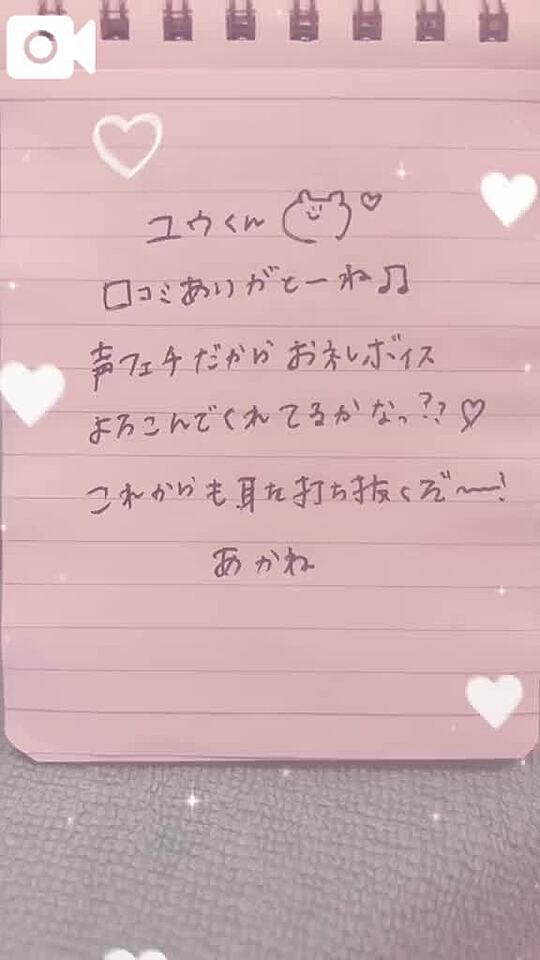 ユウくん♡
口コミありがとーね♫
声フェチだからおネレボイス
よろこんでくれてるかなっ??♡
これからも耳を打ち抜くぞ〜!
あかね